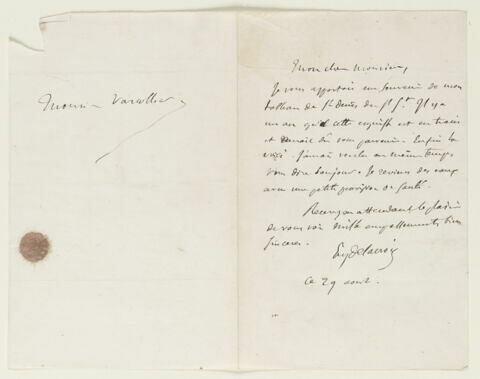 Monsieur Varcollier
Mon cher Monsieur,
Je vous apportais un souvenir de mon
tableau de St Denis du St St. Il y a
un an que cette esquisse est en train
et devait vous parvenir. Enfin la
voici. J'aurais voulu en même temps
vous dire bonjour. Je reviens des eaux
avec une petite provision de santé.
Recevez en attendant le plaisir
de vous voir mille compliments bien
sincères.
Eug Delacroix
Ce 29 août.